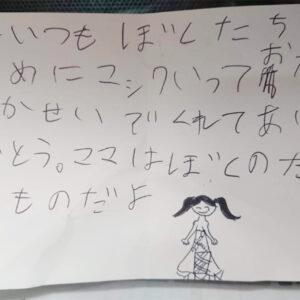 いつもぼくたち
めにマックいってお
かせいでくれてあ
とう。ママはぼくのた
ものだよ